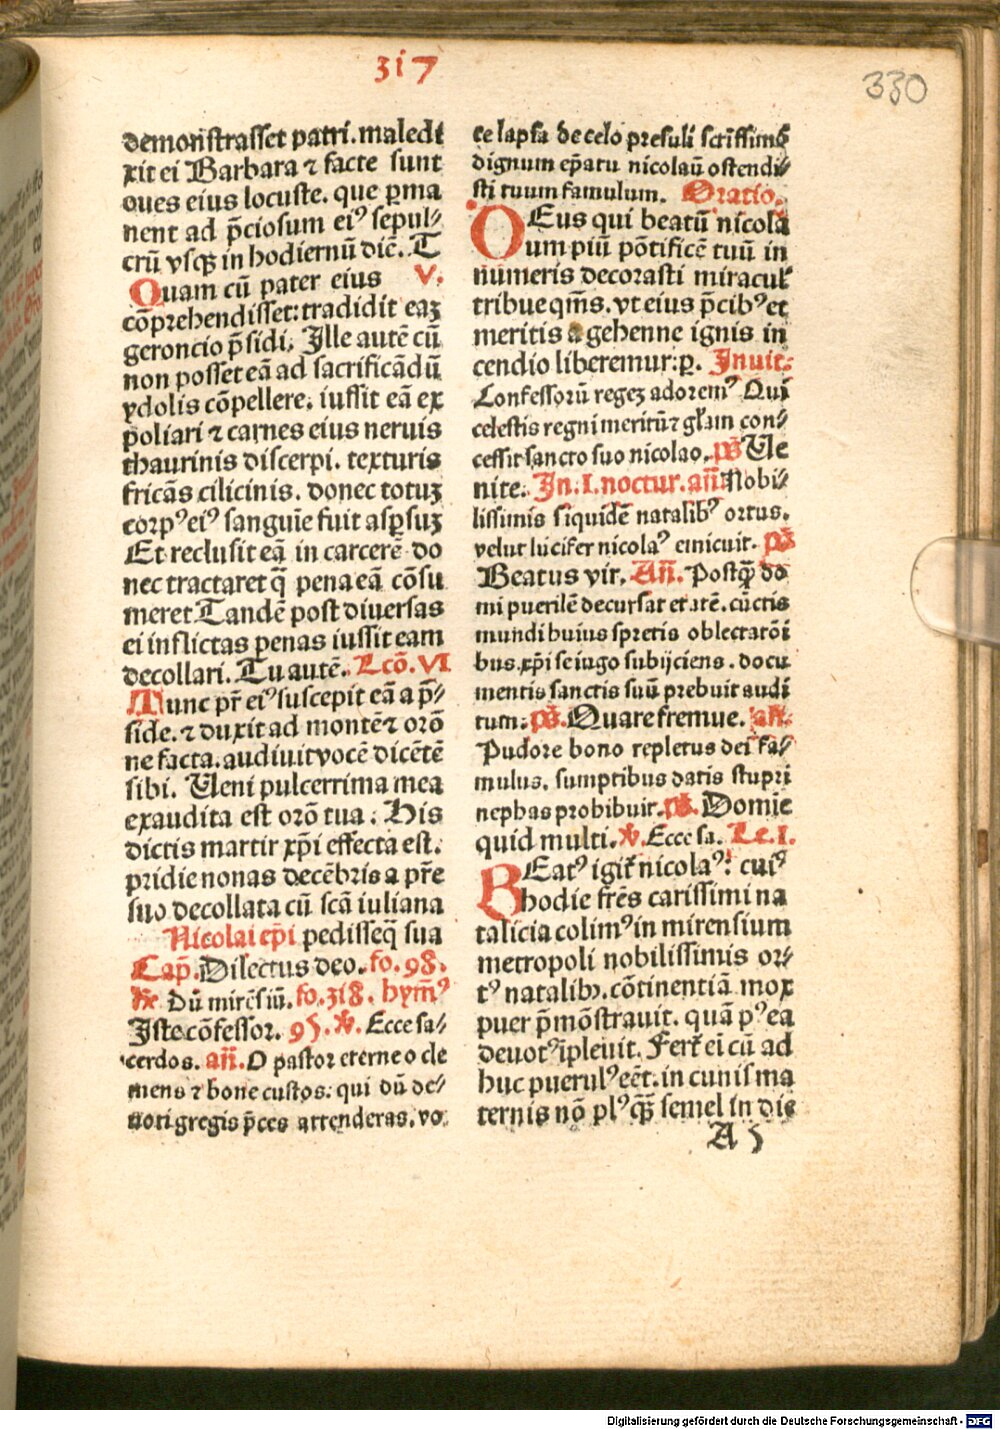 317
330
demonstrasset patri. maledi
xit ei Barbara ⁊ facte sunt
oues eius locuste. que ꝑma
nent ad p̄ciosum eiꝰ sepul⸗
crū vsqꝫ in hodiernū diē. T
Quam cū pater eius V.
cōprehendisset: tradidit eaꝫ
geroncio p̄sidi. Ille autē cū
non posset eā ad sacrificādū
ydolis cōpellere. iussit eā ex
poliari ⁊ carnes eius neruis
thaurinis discerpi. texturis
fricās cilicinis. donec totuꝫ
corpꝰ eiꝰ sanguīe fuit aspsuꝫ
Et reclusit eā in carcerē do
nec tractaret q̄ pena eā cōsu
meret Tandē post diuersas
ei inflictas penas iussit eam
decollari. Tu autē. Lcō. VI
Tunc pr̄ eiꝰ suscepit eā a p̄⸗
side. ⁊ duxit ad montē ⁊ orō
ne facta. audiuit vocē dicētē
sibi. Ueni pulcerrima mea
exaudita est orō tua. His
dictis martir xp̄i effecta est.
pridie nonas decēbris a pr̄e
suo decollata cū scā iuliana
Nicolai ep̄i pedisseq̄ sua
Cap̄. Dilectus deo. fo. 98.
Dū mirēsiū. fo. 318. hymꝰ
Iste cōfessor. 95. ℣. Ecce sa⸗
cerdos. añ. O pastor eterne o cle
mens ⁊ bone custos. qui dū de⸗
uoti gregis p̄ces attenderas. vo
ce lapsa de celo presuli sctissimo
dignum ep̄atu nicolaū ostendi⸗
sti tuum famulum. Oratio.
DEus qui beatū nicola
um piū pōtificē tuū in
numeris decorasti miracul
tribue qm̄s. vt eius p̄cibꝰ et
meritis a gehenne ignis in
cendio liberemur: ꝑ. Inuit.
Confessorū regeꝫ adoremꝰ Qui
celestis regni meritū ⁊ gl̄am con⸗
cessit sancto suo nicolao. p̄s Ue
nite. In. I. noctur. añ Nobi⸗
lissimis siquidē natalibꝰ ortus.
velut lucifer nicolaꝰ emicuit. p̄s
Beatus vir. Añ. Postqꝫ do
mi puerilē decursat etatē. cūctis
mundi huius spretis oblectatōi
bus. xp̄i se iugo subijciens. docu
mentis sanctis suū prebuit audi
tum. p̄s. Quare fremue. añ.
Pudore bono repletus dei fa⸗
mulus. sumptibus datis stupri
nephas prohibuit. p̄s. Domīe
quid multi. ℣. Ecce sa. Le. I.
BEatꝰ igit̄ nicolaꝰ: cuiꝰ
hodie fr̄es carissimi na
talicia colimꝰ in mirensium
metropoli nobilissimis or⸗
tꝰ natalibꝫ. cōtinentiā mox
puer p̄mōstrauit. quā pꝰea
deuotꝰ īpleuit. Fert̄ eī cū ad
huc puerulꝰ eēt. in cunis ma
ternis nō plꝰ qꝫ semel in die
A 5
Digitalisierung gefördert durch die Deutsche Forschungsgemeinschaft - DFG